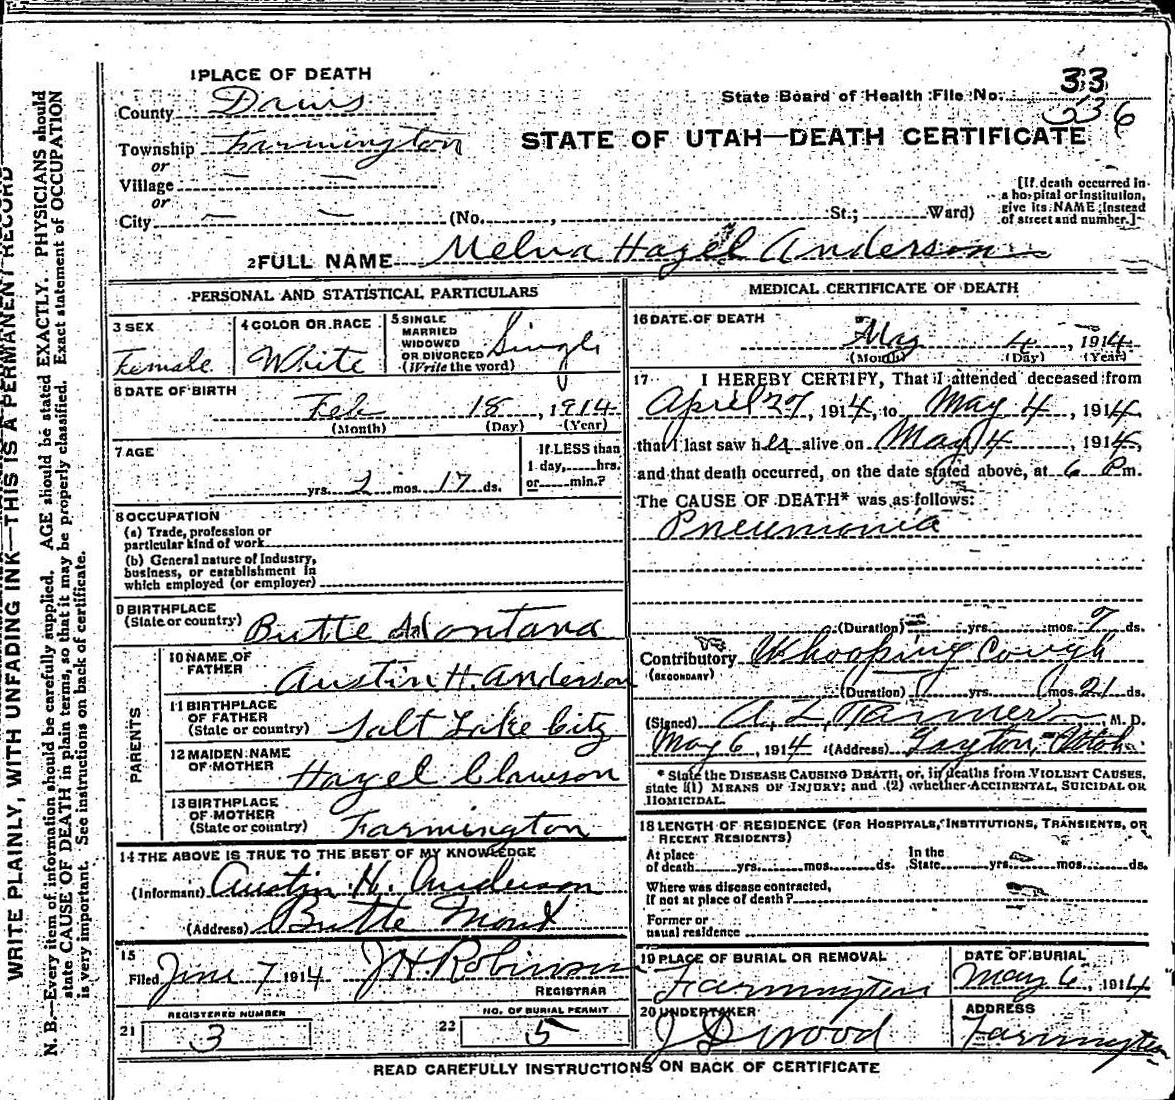 WRITE PLAINLY, WITH UNFADING INK—THIS IS A PERMANENT RECORD
N. B.—Every item of information should be carefully supplied. AGE should be stated EXACTLY. PHYSICIANS should
state CAUSE OF DEATH in plain terms, so that it may be properly classified. Exact statement of OCCUPATION
is very important. See instructions on back of certificate.
1 PLACE OF DEATH
County Davis
State Board of Health File No. 33
536
Township Farmington
STATE OF UTAH—DEATH CERTIFICATE
or
Village — —
or
City — — (No. , St.; Ward)
[If death occurred in
a hospital or institution,
give its NAME instead
of street and number.]
2 FULL NAME Melva Hazel Anderson
PERSONAL AND STATISTICAL PARTICULARS
3 SEX
Female
4 COLOR OR RACE
White
5 SINGLE
MARRIED
WIDOWED
OR DIVORCED
(Write the word)
Single
6 DATE OF BIRTH
Feb 18, 1914
(Month) (Day) (Year)
7 AGE
yrs. 2 mos. 17 ds.
If LESS than
1 day, hrs.
or min.?
8 OCCUPATION
(a) Trade, profession or
particular kind of work
(b) General nature of industry,
business, or establishment in
which employed (or employer)
9 BIRTHPLACE
(State or country)
Butte Montana
PARENTS
10 NAME OF
FATHER
Austin H. Anderson
11 BIRTHPLACE
OF FATHER
(State or country)
Salt Lake City
12 MAIDEN NAME
OF MOTHER
Hazel Clawson
13 BIRTHPLACE
OF MOTHER
(State or country)
Farmington
14 THE ABOVE IS TRUE TO THE BEST OF MY KNOWLEDGE
(Informant) Austin H. Anderson
(Address) Butte Mont
15
Filed June 7 1914 J H Robinson
REGISTRAR
REGISTERED NUMBER
21 3
NO. OF BURIAL PERMIT
22 5
MEDICAL CERTIFICATE OF DEATH
16 DATE OF DEATH
May 4, 1914
(Month) (Day) (Year)
17 I HEREBY CERTIFY, That I attended deceased from
April 27, 1914, to May 4, 1914,
that I last saw her alive on May 4, 1914,
and that death occurred, on the date stated above, at 6 P m.
The CAUSE OF DEATH* was as follows:
Pneumonia
(Duration) yrs. mos. 7 ds.
Contributory Whooping Cough
(SECONDARY)
(Duration) yrs. mos. 21 ds.
(Signed) A. L. Farmer, M. D.
May 6, 1914 (Address) Layton, Utah
* State the DISEASE CAUSING DEATH, or, in deaths from VIOLENT CAUSES,
state (1) MEANS OF INJURY; and (2) whether ACCIDENTAL, SUICIDAL OR
HOMICIDAL.
18 LENGTH OF RESIDENCE (FOR HOSPITALS, INSTITUTIONS, TRANSIENTS, OR
RECENT RESIDENTS)
At place
of death yrs. mos. ds.
In the
State yrs. mos. ds.
Where was disease contracted,
if not at place of death?
Former or
usual residence
19 PLACE OF BURIAL OR REMOVAL
Farmington
DATE OF BURIAL
May 6, 1914
20 UNDERTAKER
J D Wood
ADDRESS
Farmington
READ CAREFULLY INSTRUCTIONS ON BACK OF CERTIFICATE